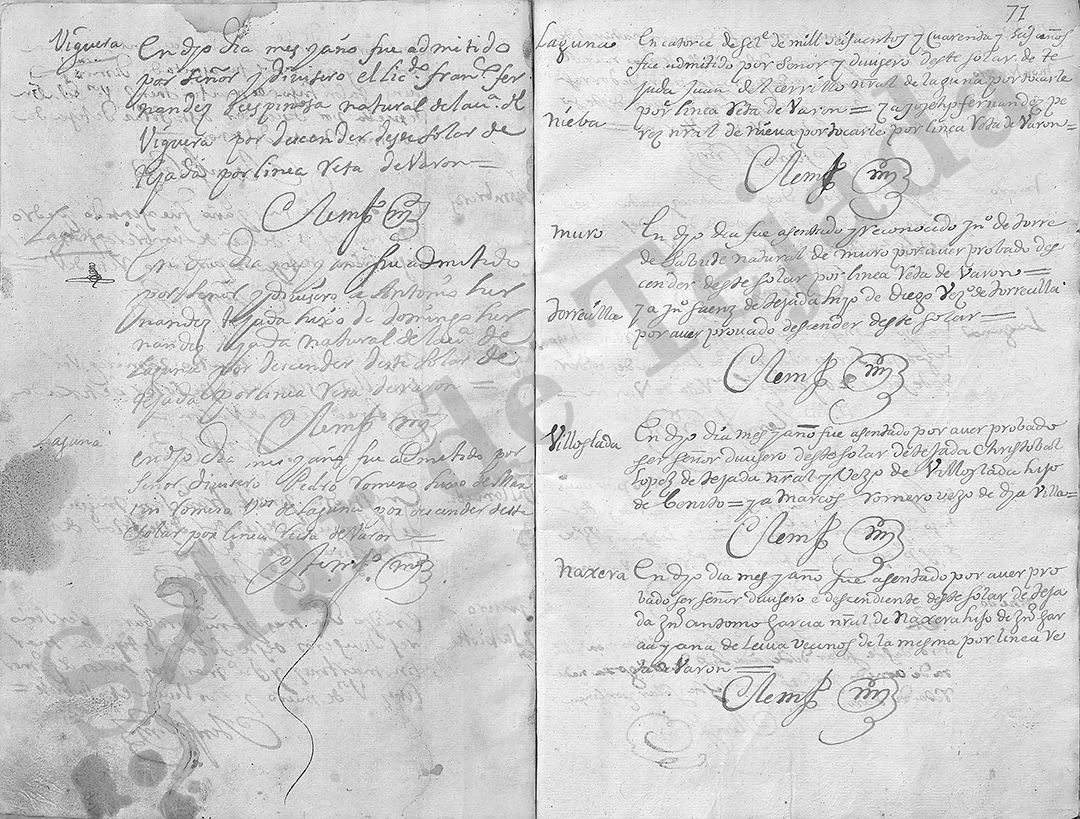 Viguera
En dho dia mes y año fue admitido
por señor y divisero el licdo. franco. fer
nandez despinosa natural de la va. de
Viguera por decender deste solar de
tejada por linea Reta de Varon =
Clemte.
En dho dia mes y año fue admitido
por señor y divisero a Antonio her
nandez tejada hixo de Domingo her
nandez tejada natural de la va. de
Laguna por decender deste solar de
tejada por linea Reta de varon =
Clemte.
Laguna
en dho dia mes y año fue admitido por
señor divisero Pedro Romero hixo de Mar
tin Romero vo. de Laguna por descender deste
solar por linea Reta de Varon =
Clemte.
71
Laguna
En catorce de sete. de mill seiscientos y Quarenta y seis años
fue admitido por señor y divisero deste solar de te
jada Juan del cerrillo nral de laguna por tocarle
por linea Reta de Varon = y a Joseph fernandez pe
Nieba
rez nral de nieva por tocarle por linea Reta de Varon =
Clemte.
Muro
En dho dia fue asentado y reconocido Juo. de torre
de natural de muro por aver probado des
cender deste solar por linea Reta de Varon =
Torreçilla
y a Juo. saenz de tejada hijo de diego Vezo. de torrecilla
por aver provado descender deste solar =
Clemte.
Villoslada
En dho dia mes y año fue asentado por aver probado
ser señor divisero deste solar de tejada Christobal
lopez de tejada nral y Vezo de Villoslada hijo
de benito = y a Marcos Romero vezo de dha Villa =
Clemte.
Naxera
En dho dia mes y año fue asentado por aver pro
bado ser señor divisero e descendiente deste solar de teja
da Juo. antonio Garcia nral de Naxera hijo de Juo. gar
cia y ana de leiva vecinos de la mesma por linea Re
ta de Varon =
Clemte.
Solar de Tejada